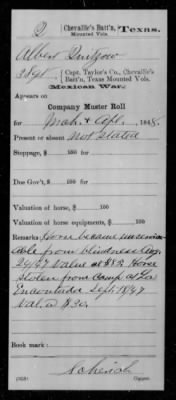 Q | Chevallie's Batt'n, Mounted Vols. | Texas.
Albert Quitzow
3 Sgt., Capt. Taylor's Co., Chevallie's Batt'n, Texas Mounted Vols.
Mexican War.
Appears on
Company Muster Roll
for Mch. & Apl., 1848.
Present or absent Not stated
Stoppage, $ 100 for
Due Gov't, $ 100 for
Valuation of horse, $ 100
Valuation of horse equipments, $ 100
Remarks: Horse became unservice-
able from blindness Aug
24/47 Value at $85 Horse
stolen from Camp at La
Encantada Sept 18/47
Val. a $30.
Book mark:
(358)
Copyist.